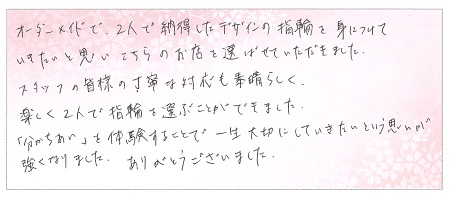 オーダーメイドで、2人で納得したデザインの指輪を身につけて
いきたいと思いこちらのお店を選ばせていただきました。
スタッフの皆様の丁寧な対応も素晴らしく、
楽しく2人で指輪を選ぶことができました。
「分かちあい」を体験することで一生大切にしていきたいという思いが
強くなりました。ありがとうございました。